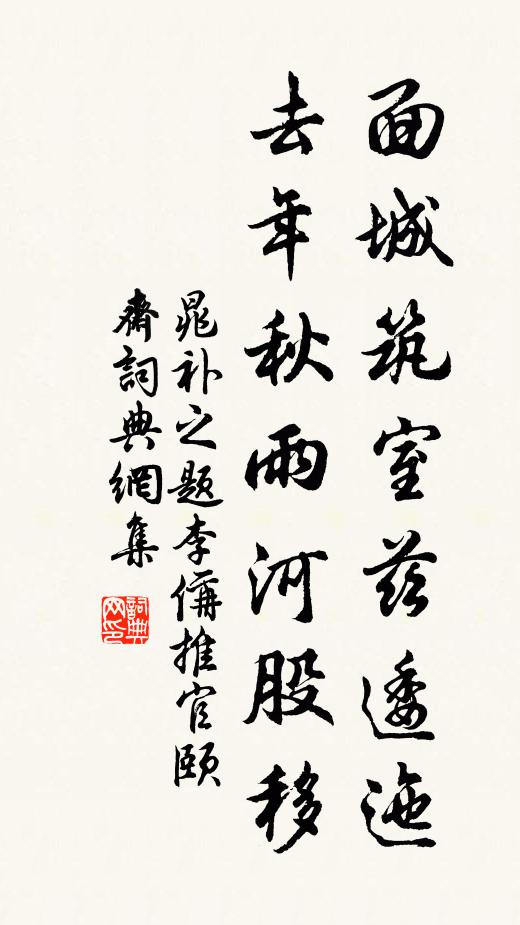 面城筑室兹逶迤
去年秋雨河股移
晁补之题李偁推官颐
斋詞典網集
詞典
网印